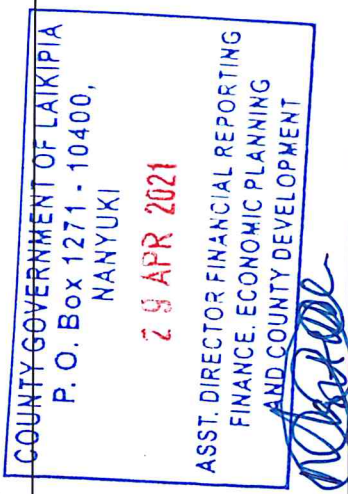 COUNTY GOVERNMENT OF LAIKIPIA
P. O. Box 1271 - 10400,
NANYUKI
29 APR 2021
ASST. DIRECTOR FINANCIAL REPORTING
FINANCE. ECONOMIC PLANNING
AND COUNTY DEVELOPMENT